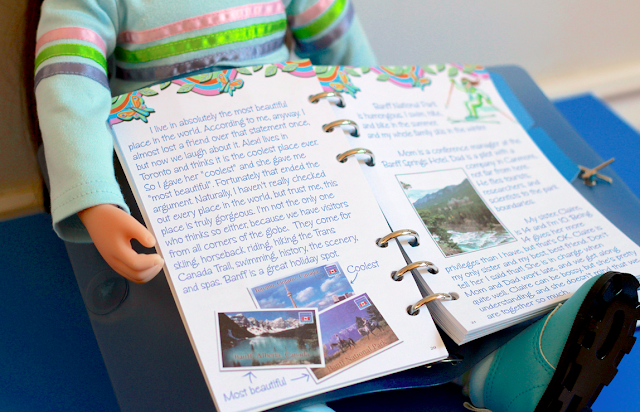 I live in absolutely the most beautiful
place in the world. According to me, anyway. I
almost lost a friend over that statement once,
but now we laugh about it. Alexi lives in
Toronto and thinks it is the coolest place ever.
So I gave her "coolest" and she gave me
"most beautiful". Fortunately that ended the
argument. Naturally, I haven't really checked
out every place in the world, but trust me, this
place is truly gorgeous. I'm not the only one
who thinks so either, because we have visitors
from all corners of the globe. They come for
skiing, horseback riding, hiking the Trans
Canada Trail, swimming, history, the scenery,
and spas. Banff is a great holiday spot.
Coolest
Most beautiful
Banff National Park
is humongous. I swim, hike,
and bike in the summer,
and my whole family skis in the winter.
Mom is a conference manager at the
Banff Springs Hotel. Dad is a pilot with a
company in Canmore,
not far from here.
He flies tourists,
researchers, and
scientists to the park
boundaries.
My sister, Claire,
is 14 and I'm 10. Being
14 gives her more
privileges than I have, but that's OK. Claire is
my only sister and my best best friend. Don't
tell her I said that. She is in charge when
Mom and Dad work late, and we get along
quite well. Claire can be bossy, but she's pretty
understanding, and she doesn't mind
are together so much.